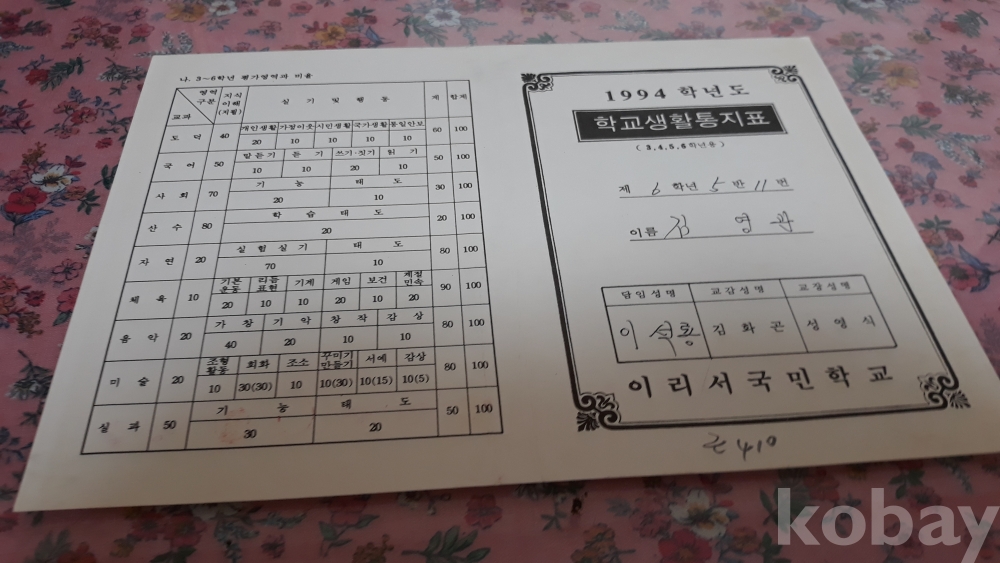 나. 3~6학년 평가영역과 비율
영역 구분 교과 지식 이해 (지필) 실기 및 행동 계 합계
도덕 40 개인생활 가정이웃 시민생활 국가생활 통일안보 60 100
20 10 10 10 10
국어 50 말듣기 듣기 쓰기·짓기 읽기 50 100
10 10 20 10
사회 70 기능 태도 30 100
20 10
산수 80 학습태도 20 100
20
자연 20 실험실기 태도 80 100
70 10
체육 10 기본운동 리듬표현 기계 게임 보건 계절민속 90 100
20 10 10 20 10 20
음악 20 가창 기악 창작 감상 80 100
40 20 10 10
미술 20 조형활동 회화 조소 꾸미기만들기 서예 감상 80 100
10 30(30) 10 10(30) 10(15) 10(5)
실과 50 기능 태도 50 100
30 20
1994 학년도
학교생활통지표
(3,4,5,6학년용)
제 6 학년 5 반 11 번
이름 김영관
담임성명 교감성명 교장성명
이석룡 김화곤 성영식
이리서국민학교
410
kobay